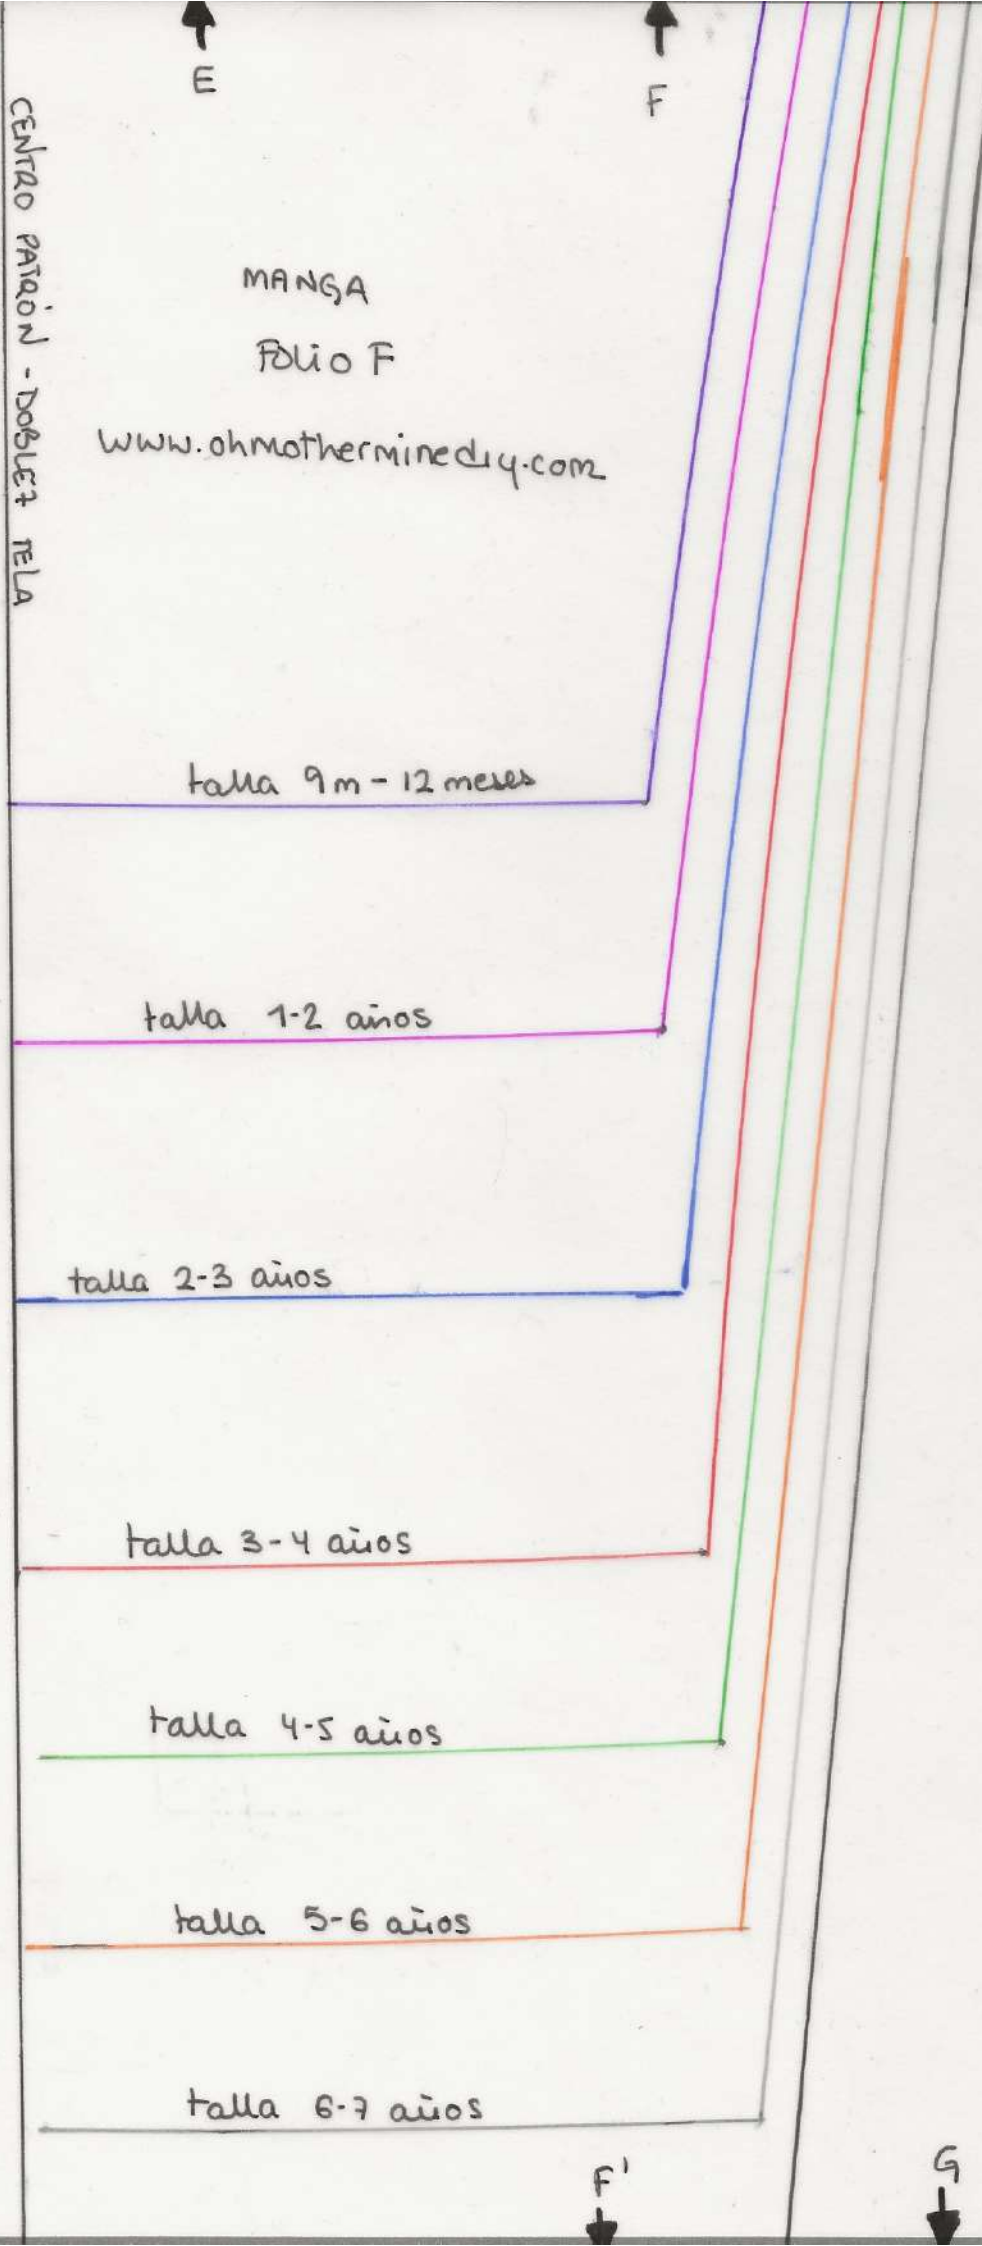 E
F
CENTRO PATRÓN - DOBLEZ TELA
MANGA
FOLIO F
www.ohmotherminediy.com
talla 9m - 12 meses
talla 1-2 años
talla 2-3 años
talla 3-4 años
talla 4-5 años
talla 5-6 años
talla 6-7 años
F'
G